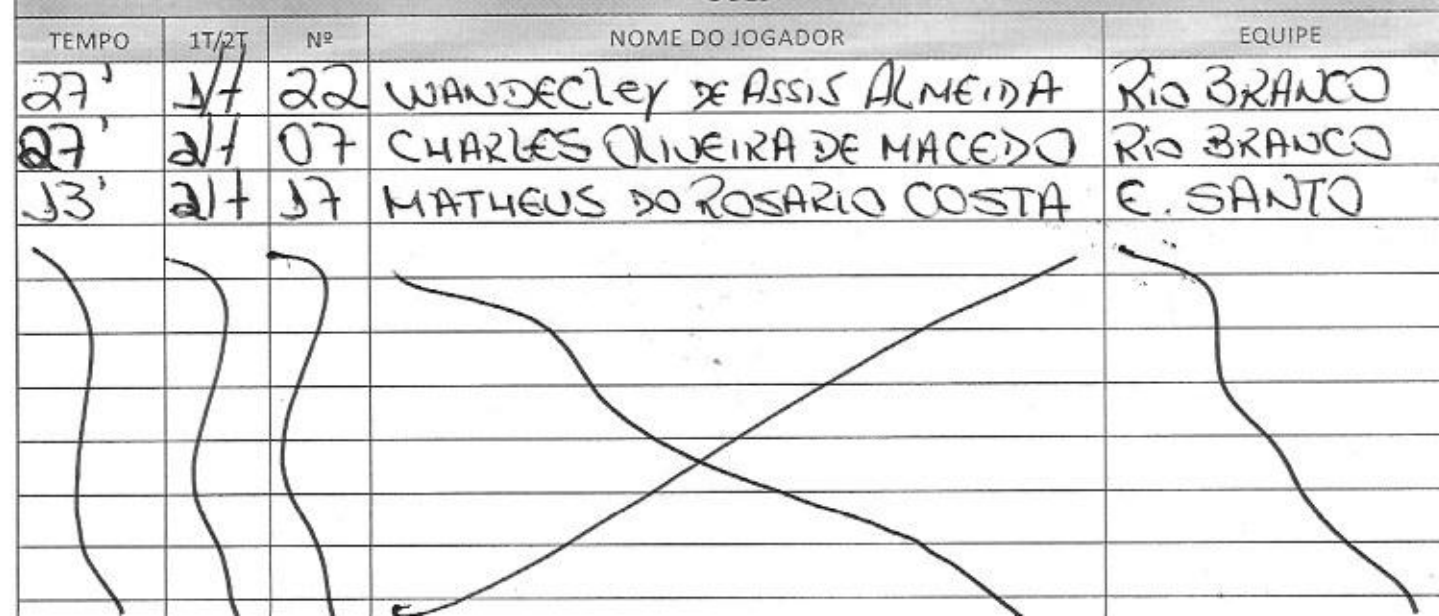 TEMPO 1T/2T Nº NOME DO JOGADOR EQUIPE
27' 1/t 22 WANDECLEY DE ASSIS ALMEIDA RIO BRANCO
27' 2/t 07 CHARLES OLIVEIRA DE MACEDO RIO BRANCO
13' 2/t 17 MATHEUS DO ROSARIO COSTA E. SANTO